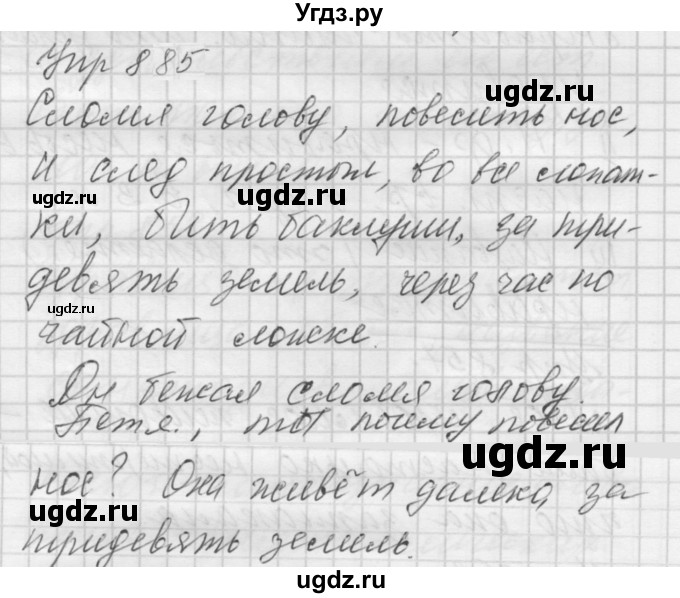 Угдз.ру
Упр 885
Сломя голову, повесить нос,
И след простыл, во все лопат-
ки, бить баклуши, за три-
девять земель, через час по
чайной ложке.
Он бежал сломя голову.
Петя, ты почему повесил
нос? Она живёт далеко, за
тридевять земель.
ugdz.ru
ugdz.ru
ugdz.ru
ugdz.ru
ugdz.ru
ugdz.ru
ugdz.ru
ugdz.ru
ugdz.ru
ugdz.ru